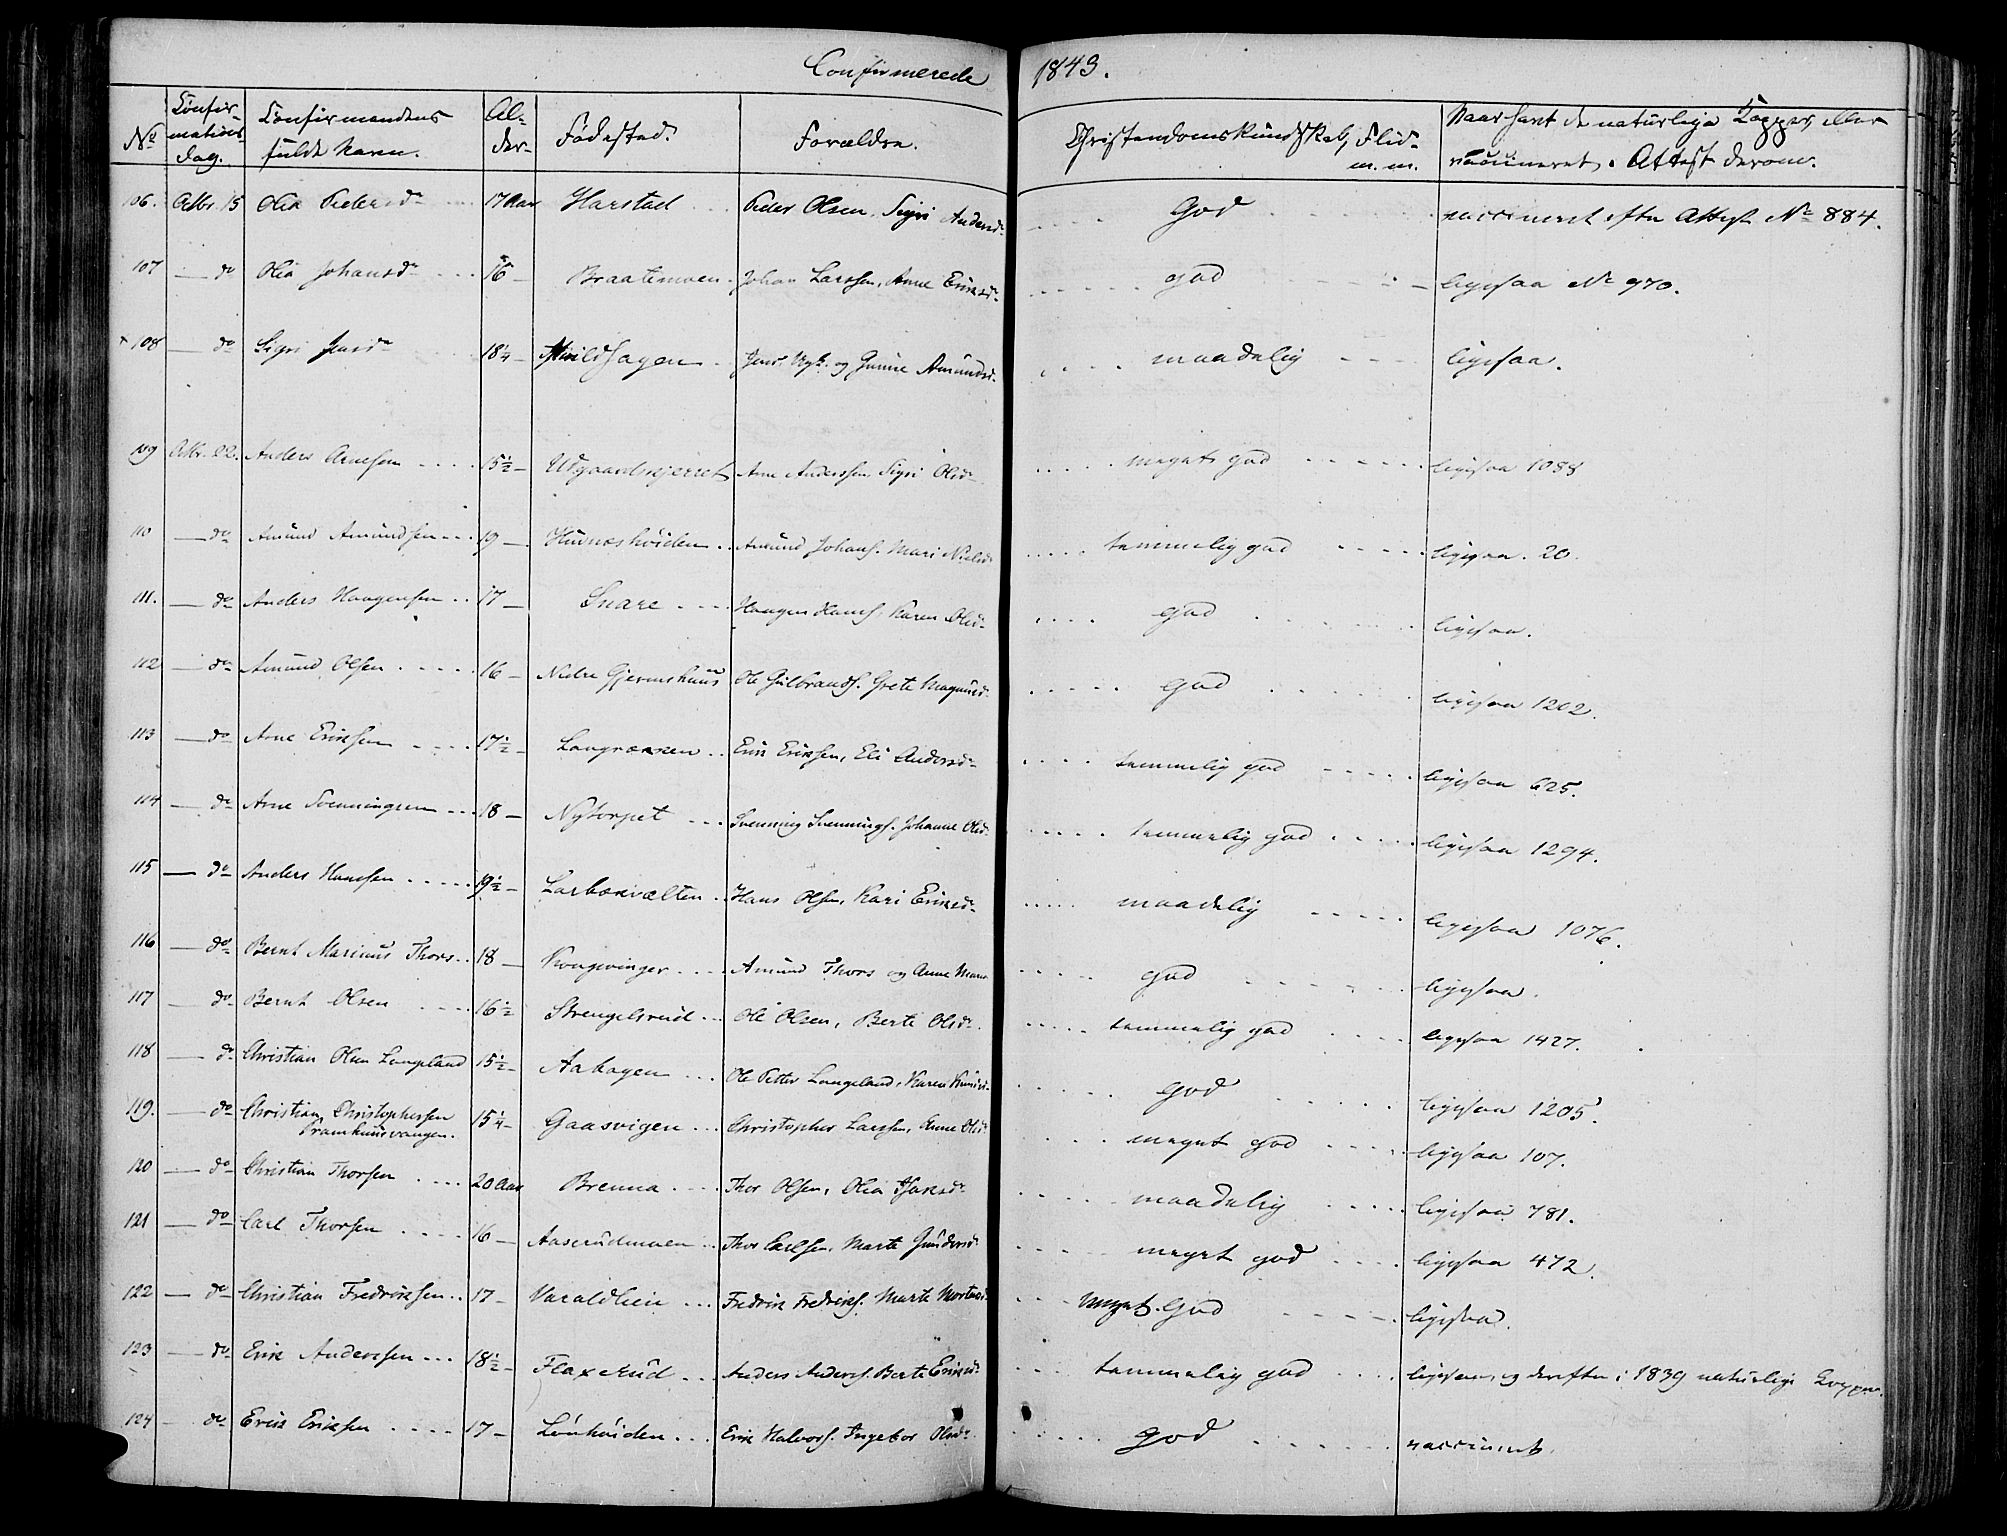 Confirmerede 1843.
No Confirmations dag. Confirmandens fulde Navn. Alder Fødested. Forældre. Christendomskundskab, Flid m. m. Naar havt de naturlige Kopper, eller vaccineret. Attest derom.
106. Octbr. 15 Olia Pedersdr 17 Aar Harstad Peder Olsen, Sigri Andersdr God vaccineret efter Attest No 884.
107 do Olia Johansdr 16 Braatemoen Johan Larssen, Anne Eriksdr god ligesaa No 970.
108 do Sigri Jensdr 18¼ hagen Jens og Gunne Amundsdr maadelig ligesaa.
109 Octbr. 22. Anders Arnesen 15½ Udgaardskjerret Arne Anderssen, Sigri Olsdr meget god ligesaa 1088
110 do Amund Amundsen 19 Hurneshøiden Amund Johans. Mari Nielsdr temmelig god ligesaa. 20.
111. do Anders Haagensen 17 Snare Haagen Hans. Karen Olsdr god ligesaa.
112 do Amund Olsen 16 Nedre Gjermshuus Ole Gulbrands. Grete Magnusdr god ligesaa 1202.
113 do Arne Eriksen 17½ Langrænnen Erik Eriksen, Eli Andersdr temmelig god ligesaa 625.
114 do Arne Svenningsen 18 Nytorpet Svenning Svennings. Johanne Olsdr temmelig god ligesaa 1294.
115 do Anders Hansen 19½ Larbækvælten Hans Olsen, Kari Eriksdr maadelig ligesaa 1076.
116 do Bernt Marinus Thors 18 Kongsvinger Amund Thors og Anne Marie god ligesaa.
117 do Bernt Olsen 16½ Strengelsrud Ole Olsen, Berte Olsdr temmelig god ligesaa 1427.
118 do Christian Olsen Langeland 15½ Aahagen Ole Petter Langeland, Karen god ligesaa 1205.
119. do Christian Christophersen Pramhuusvangen. 15¼ Gaasvigen Christopher Larssen, Anne Olsdr meget god ligesaa 107.
120 do Christian Thorsen 20 Aar Brenna Thor Olsen, Olia meget maadelig ligesaa 781.
121 do Carl Thorsen 16 Aaserudmoen Thor Carlsen, Marte Gundersdr meget god ligesaa 472.
122 do Christian Fredriksen 17 Varaldlien Fredrik Fredriks. Marte Mortensdr meget God ligesaa.
123 do Erik Anderssen 18½ Flaxerud Anders Anders. Berte Eriksdr temmelig god ligesaa, og derefter i 1839 naturlige Kopper.
124 do Erik Eriksen 17 Lønhøiden Erik Halvors. Ingebor Olsdr god vaccineret.